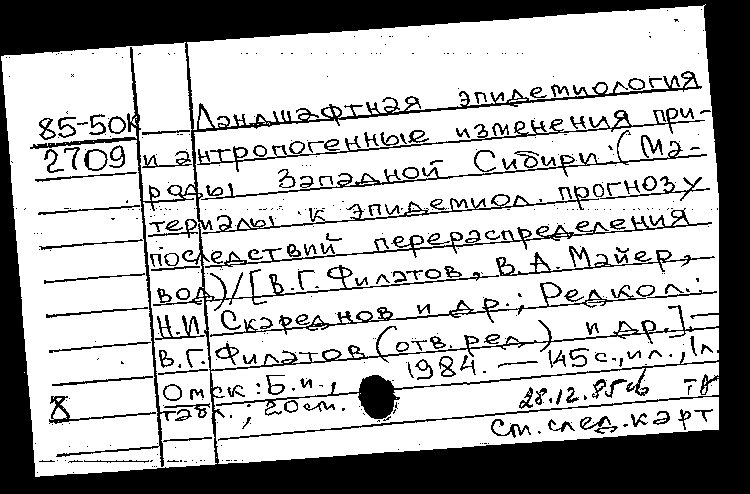 85-50К
2709
Ландшафтная эпидемиология
и антропогенные изменения при-
роды Западной Сибири: (Ма-
териалы к эпидемиол. прогнозу
последствий перераспределения
вод) / [В.Г. Филатов, В.А. Майер,
Н.И. Скареднов и др.; Редкол.:
В.Г. Филатов (отв. ред.) и др.]. —
Омск: Б.и., 1984. — 145 с., ил., 1 л.
табл.; 20 см.
8
28.12.85
См. след. карт